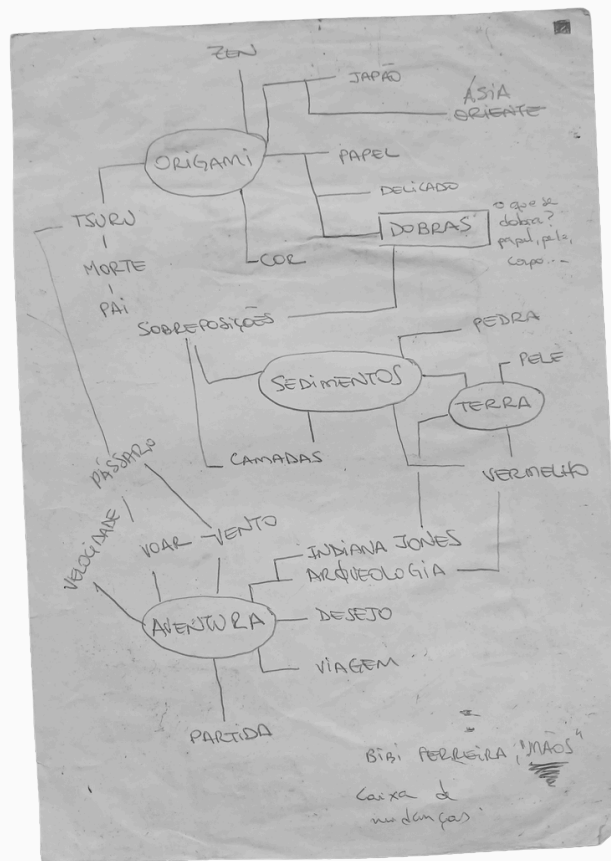 ZEN
JAPÃO
ÁSIA
ORIENTE
ORIGAMI
PAPEL
DELICADO
o que se
dobra?
papel, pele,
corpo...
DOBRAS
TSURU
MORTE
PAI
COR
SOBREPOSIÇÕES
PEDRA
SEDIMENTOS
PELE
TERRA
CAMADAS
VERMELHO
PÁSSARO
VELOCIDADE
VOAR
VENTO
INDIANA JONES
ARQUEOLOGIA
AVENTURA
DESEJO
VIAGEM...
PARTIDA
BIBI FERREIRA, "MÃOS"
Caixa de
mudanças